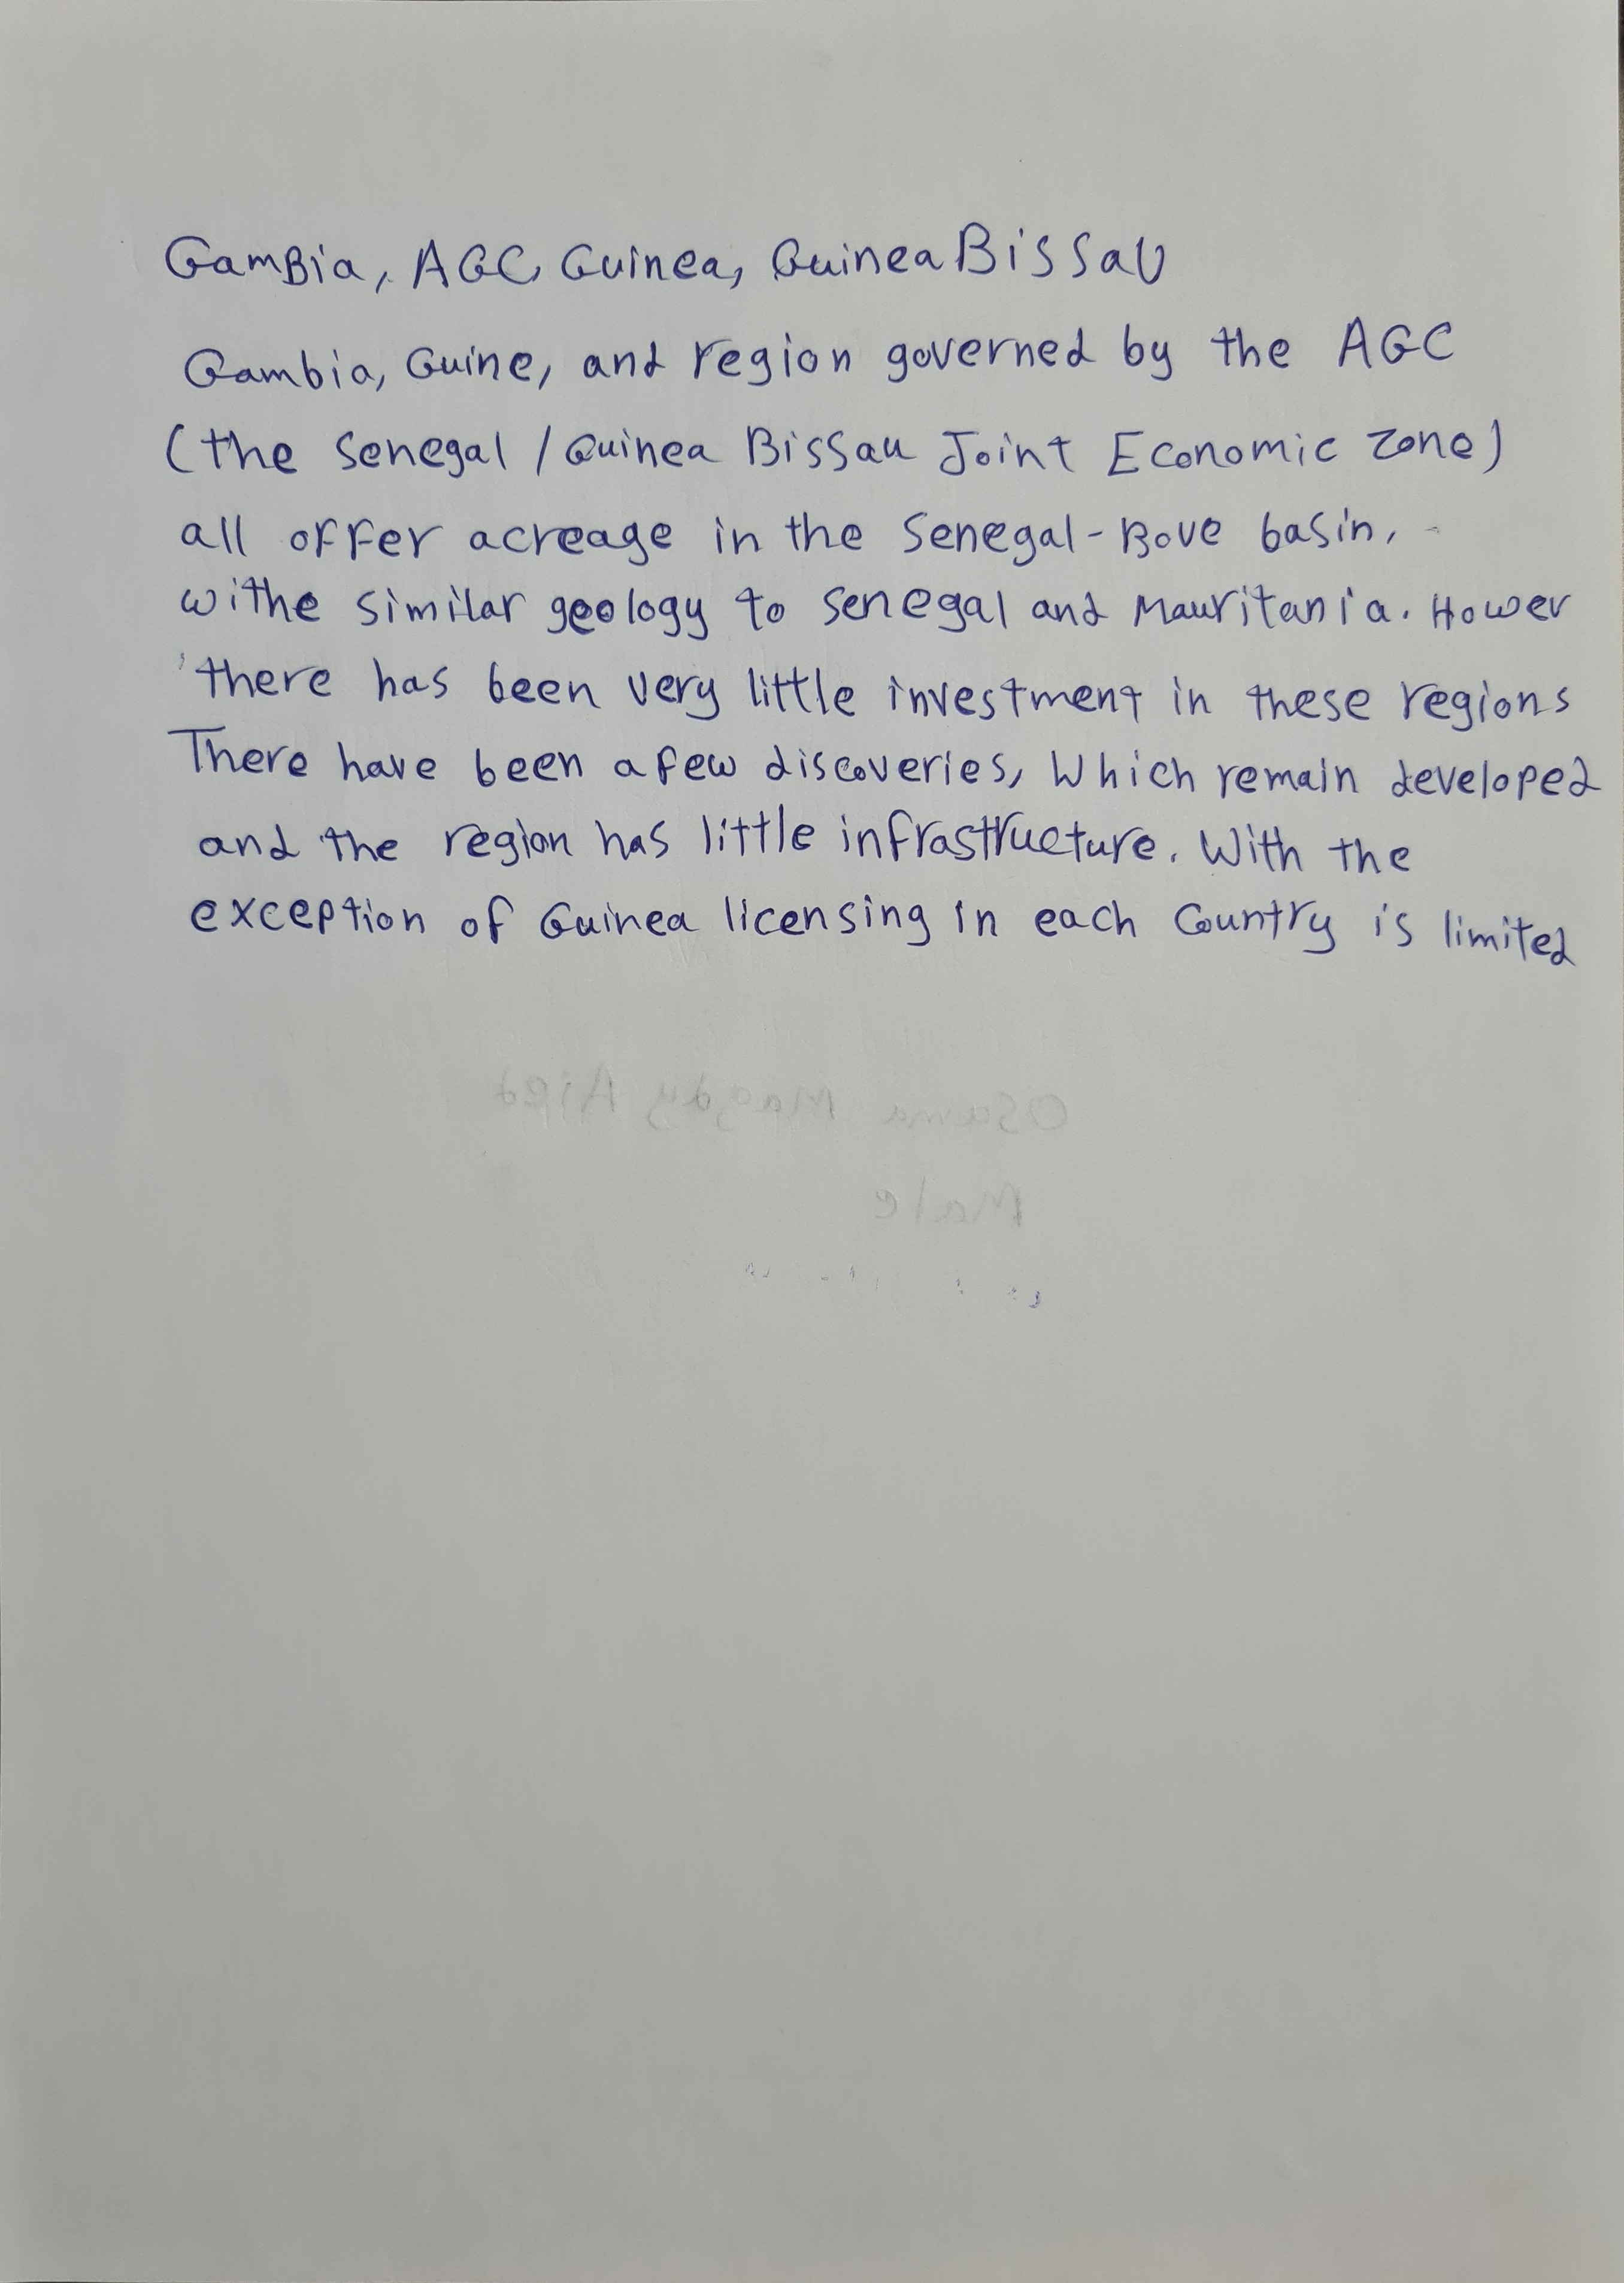 GamBia, AGC Guinea, Guinea BissaU
Gambia, Guine, and region governed by the AGC
(the Senegal / Guinea Bissau Joint Economic zone)
all offer acreage in the Senegal-Bove basin,
withe similar geology to Senegal and Mauritania. Hower
there has been very little investment in these regions
There have been a few discoveries, Which remain developed
and the region has little infrastructure. With the
exception of Guinea licensing in each Country is limited
Osama Magdy Aied
Male